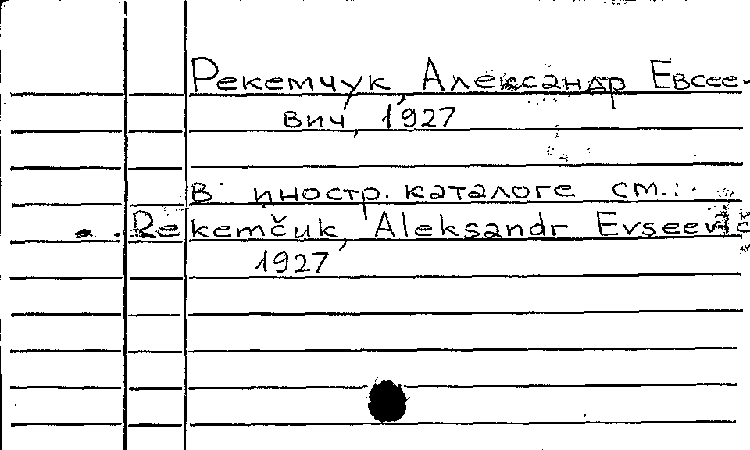 Рекемчук, Александр Евсее-
вич, 1927
В иностр. каталоге см.:
Rekemčuk, Aleksandr Evseevič
1927